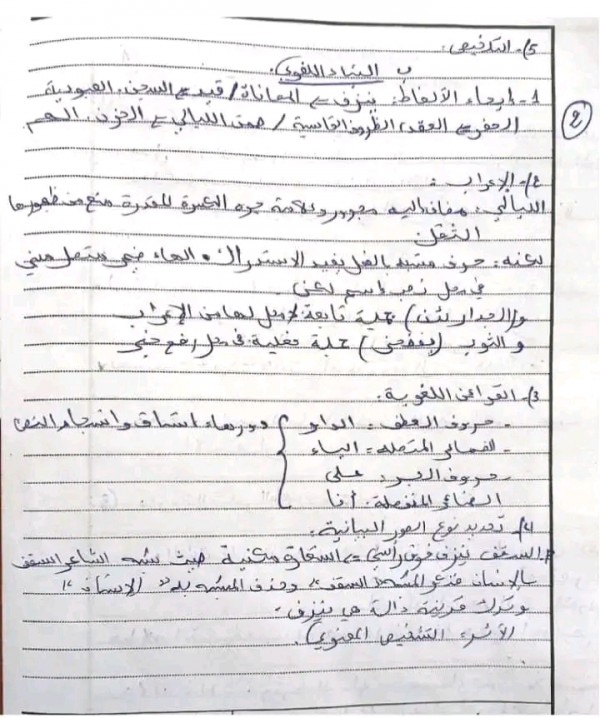 5/- التلخيص:
ب البناء اللغوي:
1- إيحاء الألفاظ: ينزف => المعاناة / قيد => السجن، العبودية
الحفر => العقد، الظروف القاسية / صمت الليالي => الحزن، الهم
2
2/- الإعراب:
الليالي: مضاف إليه مجرور وعلامة جره الكسرة المقدرة منع من ظهورها
الثقل
لكنه: حرف مشبه بالفعل يفيد الاستدراك، الهاء ضمير متصل مبني
في محل نصب اسم لكن.
و(الجدار يئن) جملة تابعة لا محل لها من الإعراب
و الثوب () جملة فعلية في محل رفع خبر
3/- القرائن اللغوية:
- حروف العطف: الواو
دورها اتساق وانسجام النص
- الضمائر المتصلة: الياء
- حروف الجر: على
الضمائر المنفصلة: أنا
4/- تحديد نوع الصور البيانية:
السقف ينزف فوق رأسي => استعارة مكنية حيث شبه الشاعر السقف
بالإنسان فذكر المشبه "السقف" وحذف المشبه به "الإنسان"
وترك قرينة دالة هي ينزف.
(الأثر: التشخيص المعنوي).